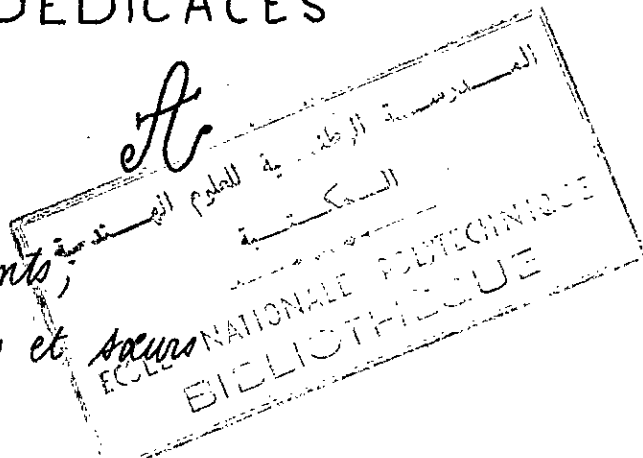 DEDICACES
A
المدرسة الوطنية للعلوم الهندسية
المكتبة
ECOLE NATIONALE POLYTECHNIQUE
BIBLIOTHEQUE
nts;
et sœurs